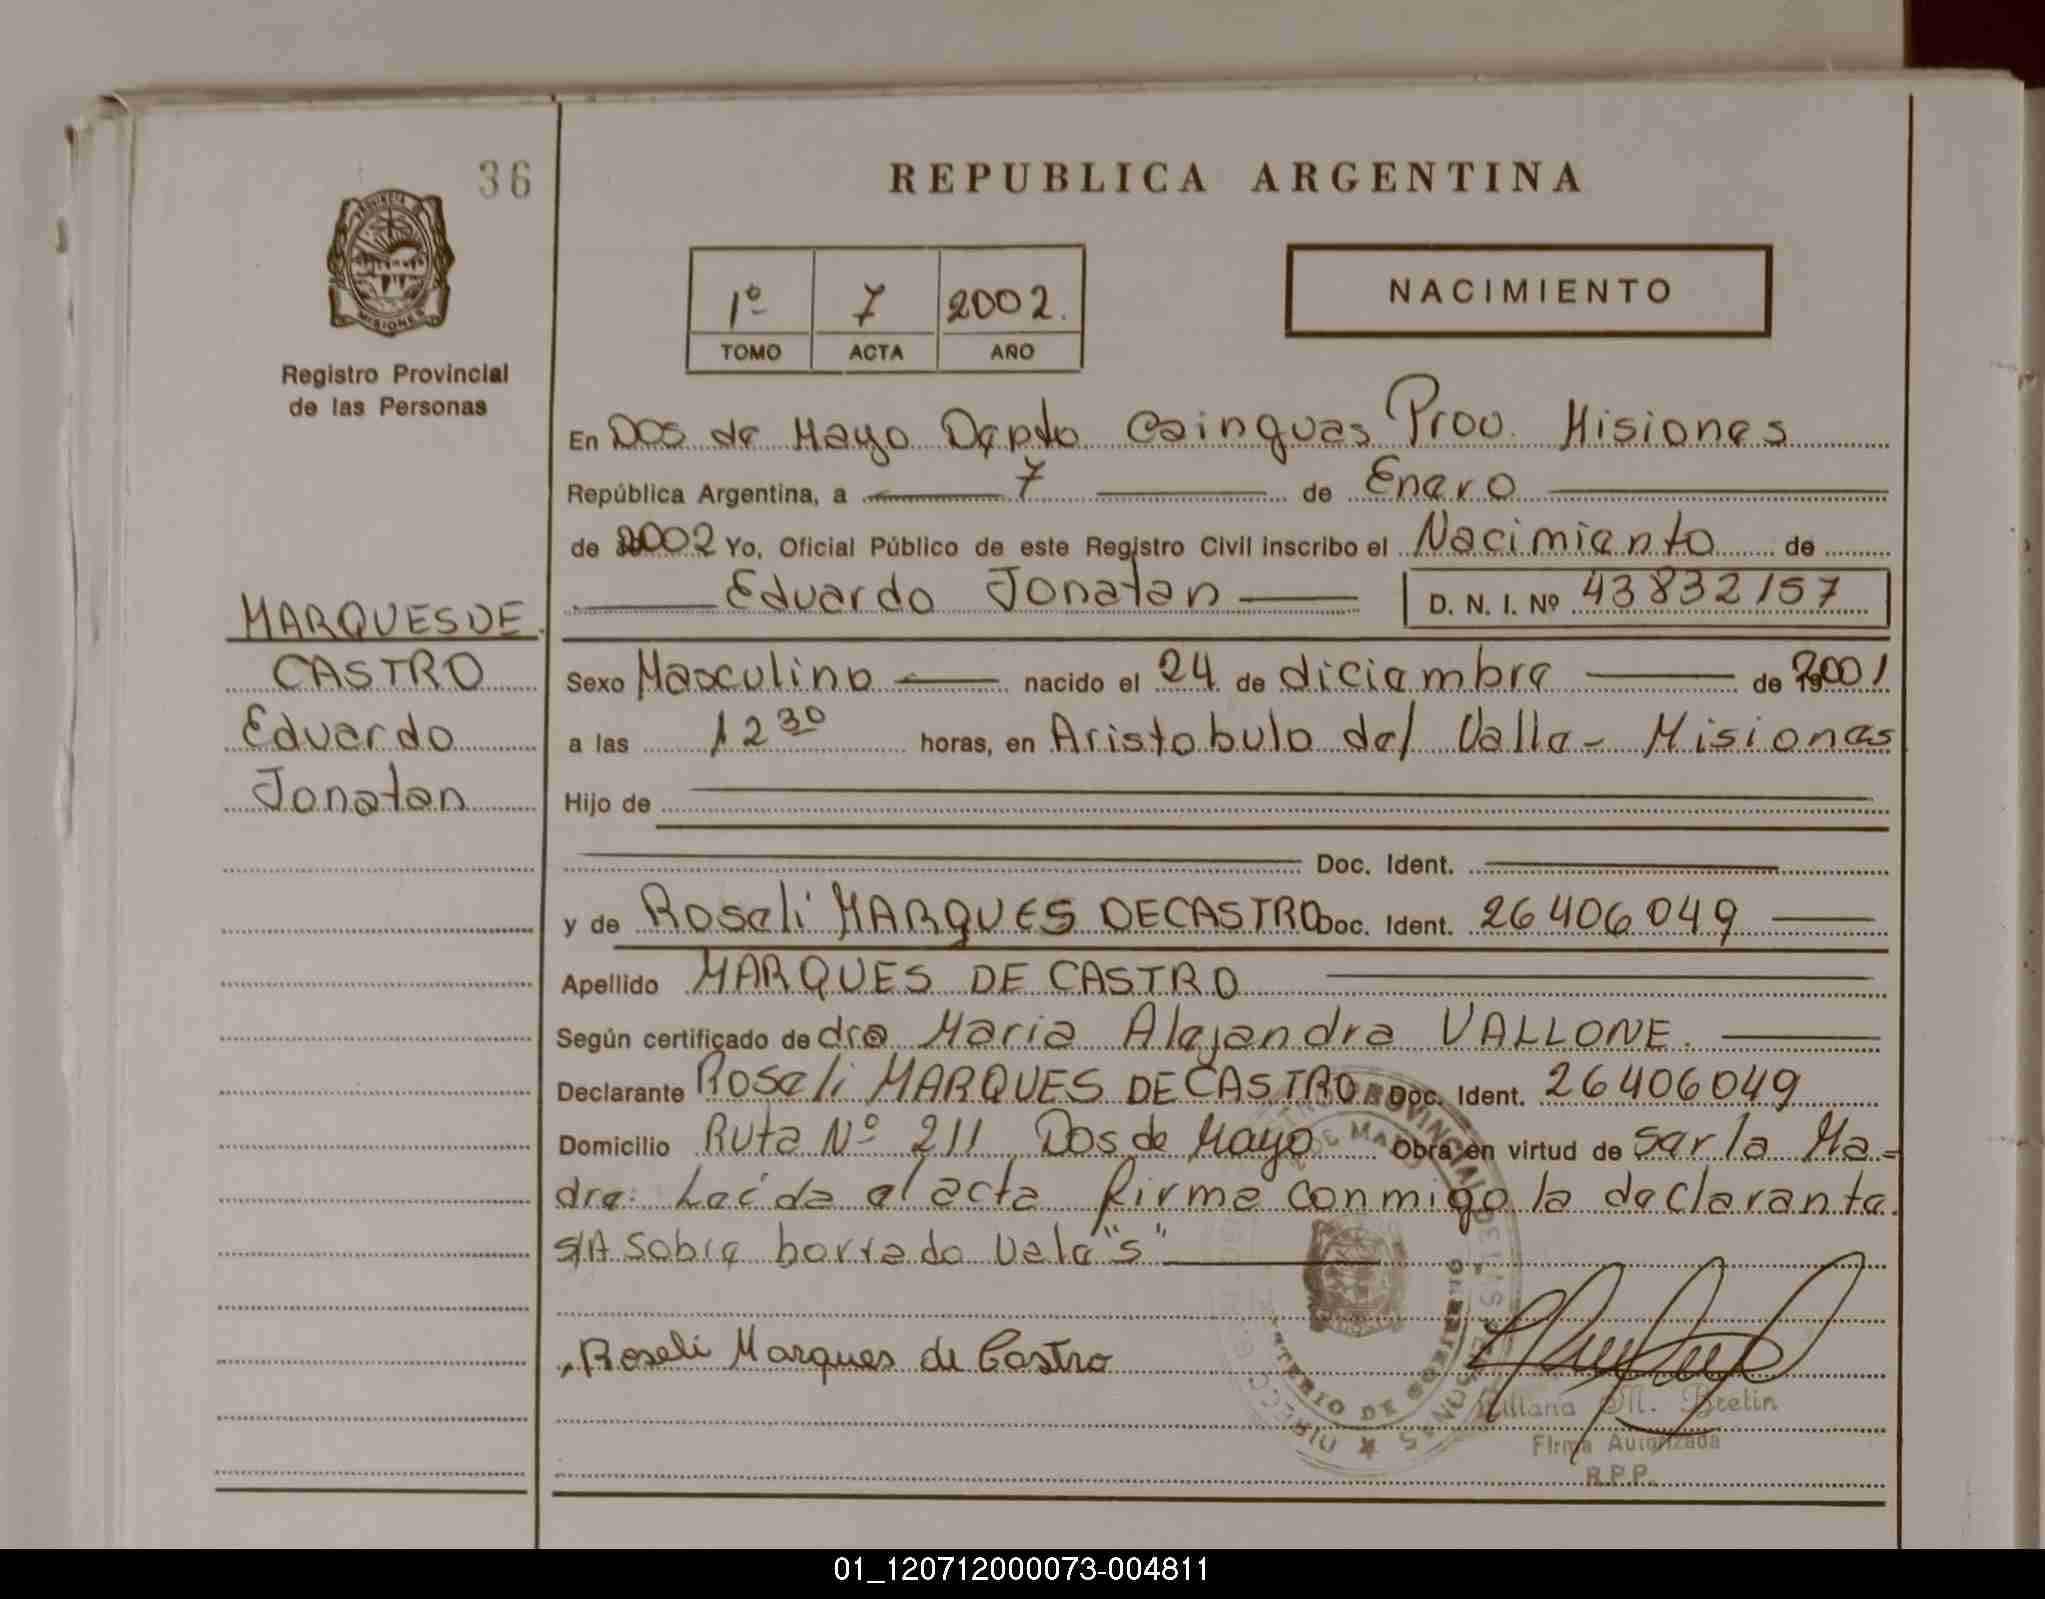 36
REPUBLICA ARGENTINA
PROVINCIA D
MISIONES
1º 7 2002.
TOMO ACTA AÑO
NACIMIENTO
Registro Provincial
de las Personas
En Dos de Mayo Depto Cainguas Prov. Misiones
República Argentina, a 7 de Enero
de 2002 Yo, Oficial Público de este Registro Civil inscribo el Nacimiento de
Eduardo Jonatan D. N. I. Nº 43832157
MARQUES DE
CASTRO
Eduardo
Jonatan
Sexo Masculino nacido el 24 de diciembre de 2001
a las 12 30 horas, en Aristobulo del Valle - Misiones
Hijo de
Doc. Ident.
y de Roseli MARQUES DE CASTRO Doc. Ident. 26406049
Apellido MARQUES DE CASTRO
Según certificado de dra Maria Alejandra VALLONE.
Declarante Roseli MARQUES DE CASTRO Doc. Ident. 26406049
Domicilio Ruta Nº 211 Dos de Mayo Obra en virtud de ser la Ma-
dre. Leida el acta firma conmigo la declarante.
S/A Sobre borrado Vale "s"
Roseli Marques de Castro
Liliana M. Bretin
Firma Autorizada
R.P.P.
01_120712000073-004811